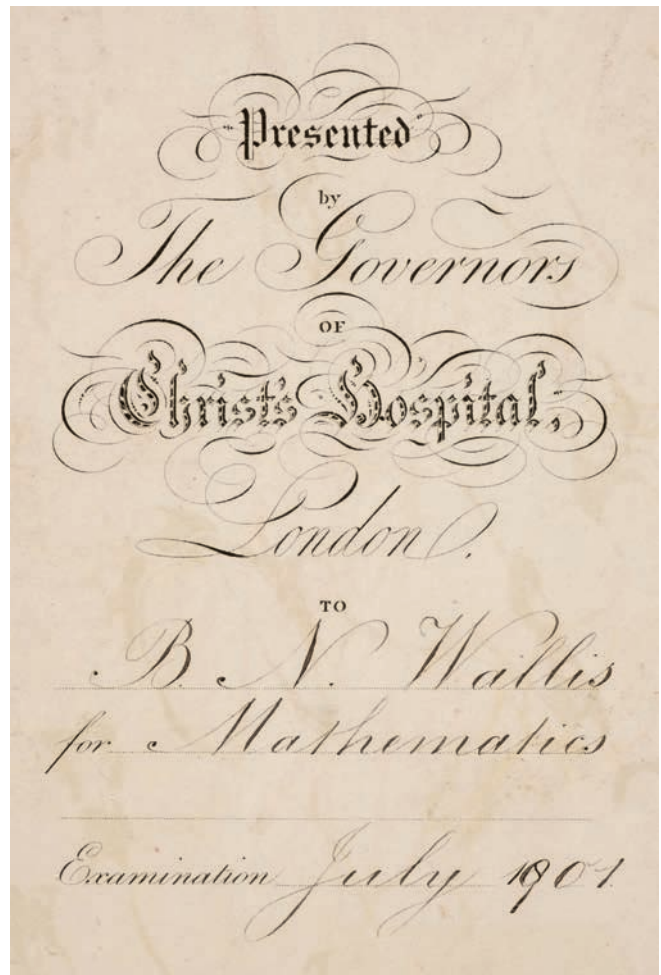 "Presented"
by
The Governors
OF
Christ's Hospital,
London.
TO
B. N. Wallis
for Mathematics
Examination July 1901